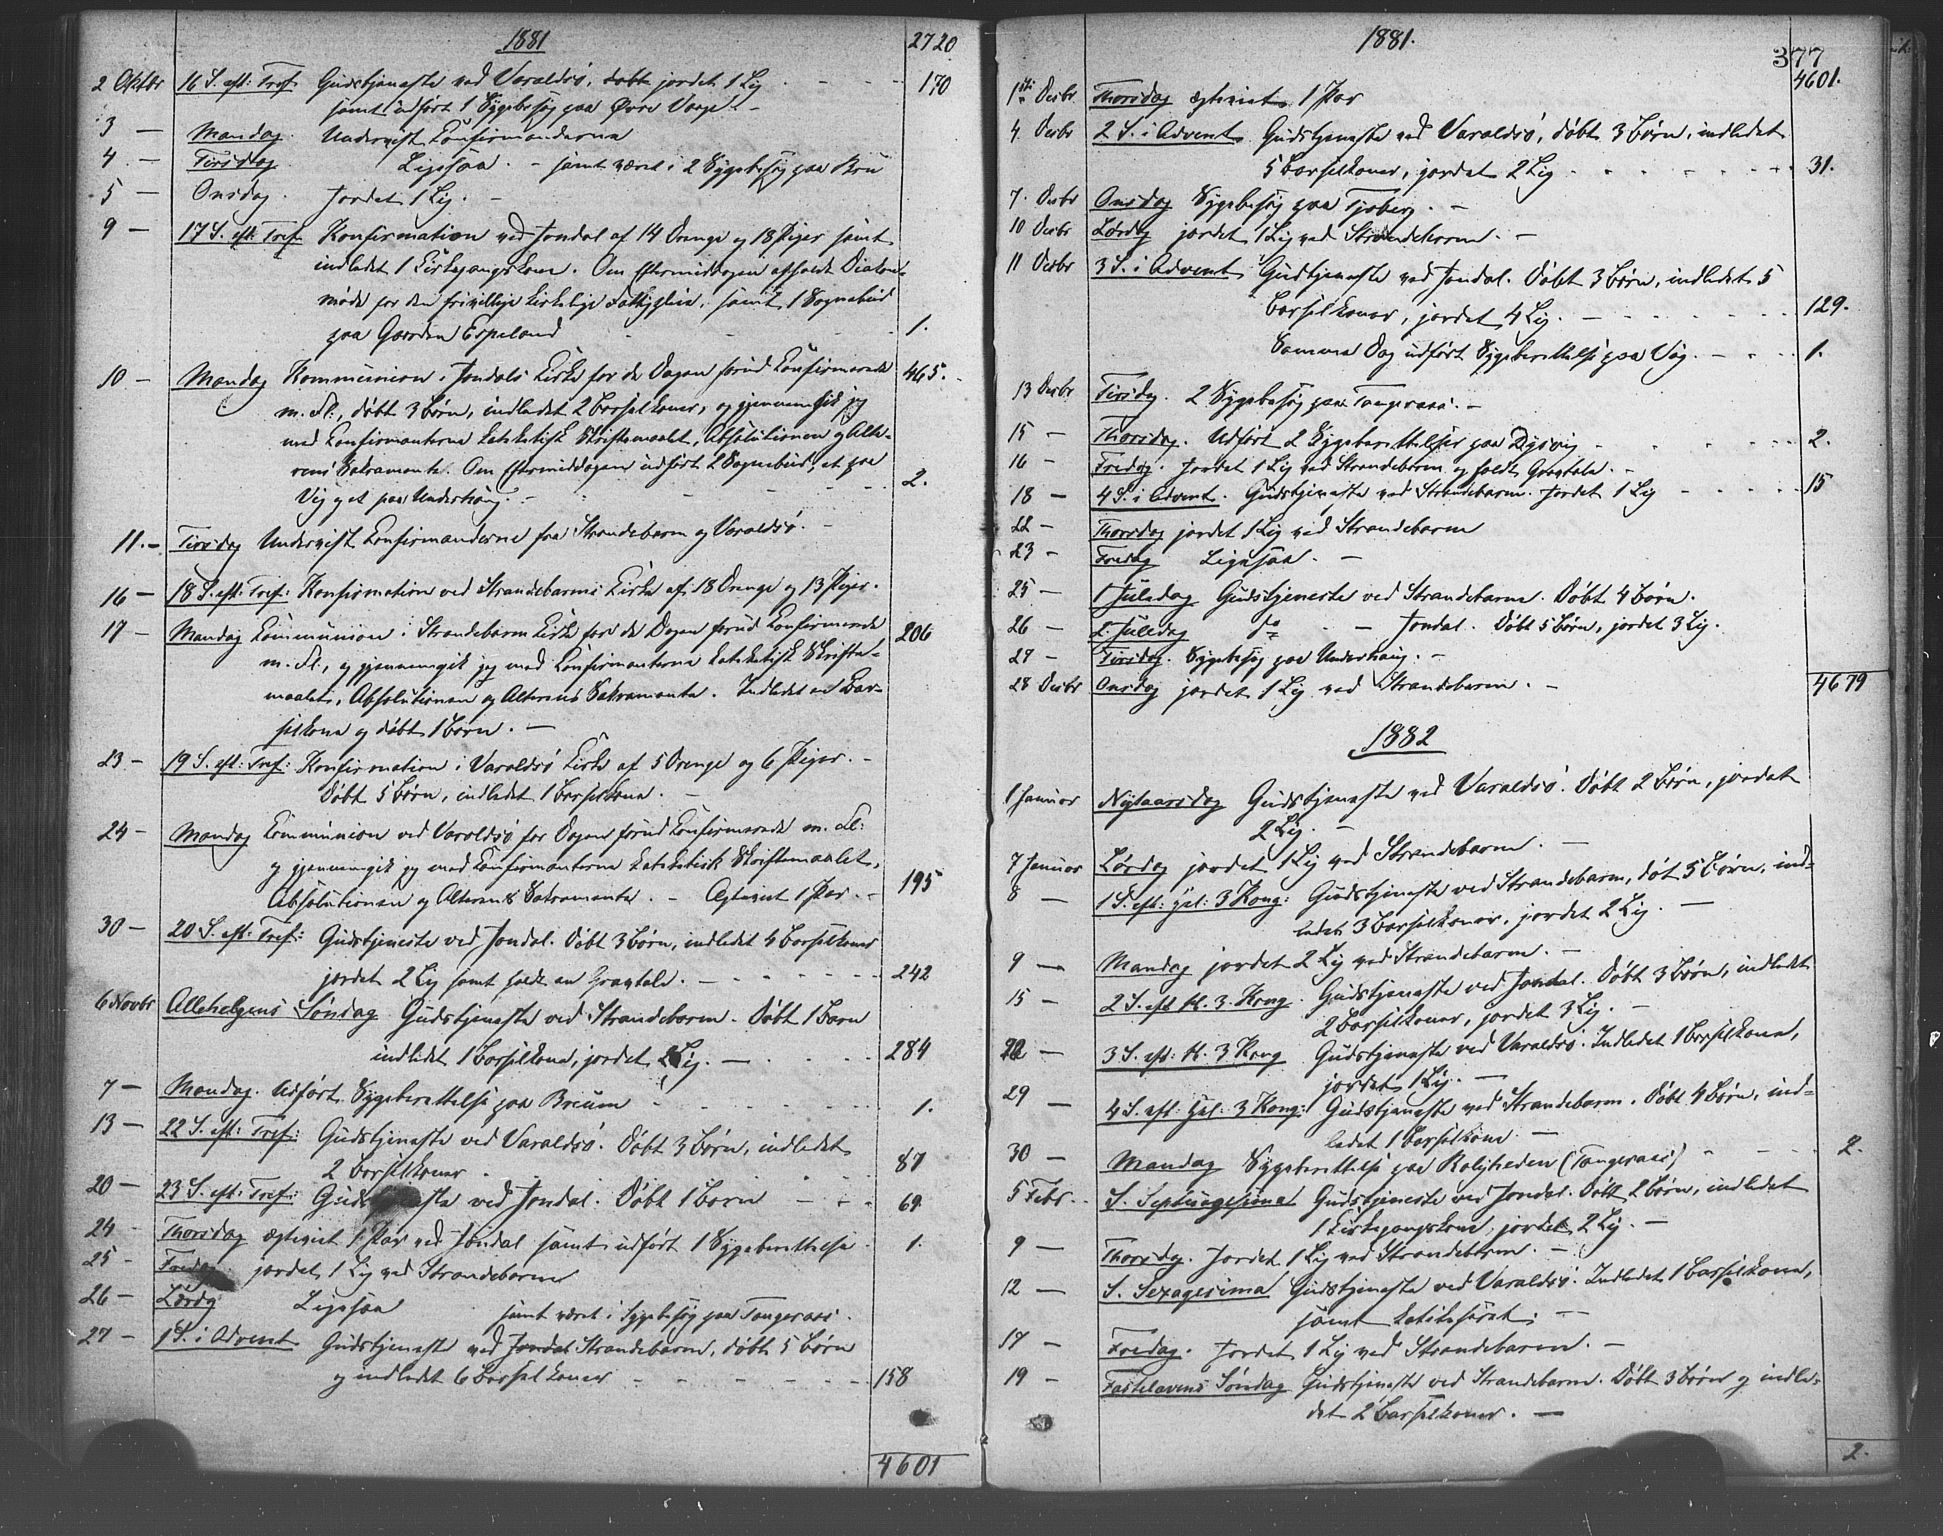 1881
2720
2 Oktbr 16 S. eft. Tref. Gudstjeneste ved Varaldsö, jordet 1 Lig - - - 170
samt udført 1 Sygebesøg paa Øvre Vaage -
3 — Mandag. Undervist Konfirmanderne
4. — Tirsdag Ligesaa. - samt været i 2 Sygebesøg paa
5 — Onsdag. Jordet 1 Lig. -
9 — 17 S. eft. Tref. Konfirmation ved Jondal af 14 Drenge og 18 Piger samt
indledet 1 Kirkegangskone. Om Eftermiddagen afholdt Diakon-
møde for den frivillige kirkelige Fattigpleie, samt 1 Sognebud
paa Gaarden Espeland - 1.
10 — Mandag Kommunion i Jondals Kirke for de Dagen forud Konfirmerede 465.
m. Fl., døbt 3 Børn, indledet 2 Barselkoner, og gjennemgik jeg
med Konfirmanterne kateketisk Skriftemaalet, Absolutionen og Alte-
rens Sakramente. Om Eftermiddagen udført 2 Sognebud, et paa
Vig og et paa Underhaug. - 2.
11. — Tirsdag Undervist Konfirmanderne fra Strandebarm og Varaldsö. -
16 — 18 S. eft. Tref: Konfirmation ved Strandebarms Kirke af 18 Drenge og 13 Piger.
17 — Mandag Kommunion i Strandebarm Kirke for de Dagen forud Konfirmerede 206
m. Fl., og gjennemgik jeg med Konfirmanterne katekisk Skrifte-
maalet, Absolutionen og Alterens Sakramente. Indledet en Bar-
selkone og døbt 1 Barn. —
23 — 19 S. eft: Tref: Konfirmation i Varaldsö Kirke af 5 Drenge og 6 Piger. -
Døbt 5 Børn, indledet 1 Barselkone. -
24 — Mandag Kommunion ved Varaldsö for Dagen forud Konfirmerede m. Fl:
og gjennemgik jeg med Konfirmanterne katekisk Skriftemaalet,
Absolutionen og Alterens Sakramente. - Ægteviet 1 Par. - 195
30 — 20 S. eft: Tref: Gudstjeneste ved Jondal. Døbt 3 Børn, indledet 4 Barselkoner
jordet 2 Lig samt holdt en Gravtale. - - - 242
6 Novbr Allehelgens Søndag Gudstjeneste ved Strandebarm. Døbt 1 Barn
indledet 1 Barselkone, jordet 2 Lig. — - - 284
7 — Mandag. Udført Sygeberettelse paa - - - 1.
13 — 22 S. eft: Tref: Gudstjeneste ved Varaldsö. Døbt 3 Børn, indledet
2 Barselkoner - - 87
20 — 23 S. eft: Tref: Gudstjeneste ved Jondal. Døbt 1 Barn - - - 69.
24 - Thorsdag ægteviet 1 Par ved Jondal samt udført 1 Sygeberettelse - 1.
25 - Fredag. jordet 1 Lig ved Strandebarm
26 — Lørdag Ligesaa samt været i Sygebesøg paa Tangeraas.
27 — 1 S. i Advent Gudstjeneste ved Jondal Strandebarm, døbt 5 Børn
og indledet 6 Barselkoner - - - - 158
4601
1881.
377
4601.
1ste Decbr Thorsdag ægteviet 1 Par
4. Decbr 2 S. i Advent Gudstjeneste ved Varaldsö, døbt 3 Børn, indledet
5 Barselkoner, jordet 2 Lig - - - - 31.
7. Decbr Onsdag Sygebesøg paa Tjoberg. —
10 Decbr Lørdag jordet 1 Lig ved Strandebarm. -
11 Decbr 3 S. i Advent Gudstjeneste ved Jondal. Døbt 3 Børn, indledet 5
Barselkoner, jordet 4 Lig. - - - - 129.
Samme Dag udført Sygeberettelse paa Vig. - - - 1.
13 Decbr Tirsdag. 2 Sygebesøg paa Tangeraas. -
15 — Thorsdag. Udført 2 Sygeberettelser paa Dysvig - - - 2.
16 — Fredag. Jordet 1 Lig ved Strandebarm og holdt Gravtale. -
18 — 4 S. i Advent. Gudstjeneste ved Strandebarm. Jordet 1 Lig - - - 15
22 — Thorsdag jordet 1 Lig ved Strandebarm
23 — Fredag Ligesaa. —
25 — 1 Juledag Gudstjeneste ved Strandebarm. Døbt 4 Børn.
26 — 2. Juledag do - - Jondal. Døbt 5 Børn, jordet 3 Lig.
27 — Tirsdag. Sygebesøg paa Underhaug. -
28 Decbr Onsdag jordet 1 Lig ved Strandebarm. —
4679
1882
1 Januar Nytaarsdag Gudstjeneste ved Varaldsö. Døbt 2 Børn, jordet
2 Lig. —
7 Januar Lørdag jordet 1 Lig ved Strandebarm. —
8 — 1 S. eft: Hel: 3 Kong: Gudstjeneste ved Strandebarm, døbt 5 Børn, ind-
ledet 3 Barselkoner, jordet 2 Lig. —
9 — Mandag jordet 2 Lig ved Strandebarm. —
15 — 2 S. eft H. 3. Kong. Gudstjeneste ved Jondal. Døbt 3 Børn, indledet
2 Barselkoner, jordet 3 Lig. —
22 — 3 S. eft: H. 3 Kong Gudstjeneste ved Varaldsö. Indledet 1 Barselkone,
jordet 1 Lig. —
29 — 4 S. eft: Hel: 3 Kong: Gudstjeneste ved Strandebarm. Døbt 4 Børn, ind-
ledet 1 Barselkone. —
30 — Mandag Sygeberettelse paa Roligheden (Tangeraas) - - - 2.
5 Febr. S. Septuagesima Gudstjeneste ved Jondal. Døbt 2 Børn, indledet
1 Kirkegangskone, jordet 2 Lig. —
9 — Thorsdag. Jordet 1 Lig ved Strandebarm. —
12 — S. Sexagesima Gudstjeneste ved Varaldsö. Indledet 1 Barselkone,
samt kateketiseret. —
17 — Fredag. Jordet 1 Lig ved Strandebarm. —
19 — Fastelavens Søndag Gudstjeneste ved Strandebarm. Døbt 3 Børn og indle-
det 2 Barselkoner. —
2.